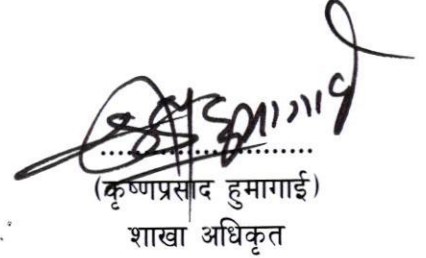 ........................
(कृष्णप्रसाद हुमागाई)
शाखा अधिकृत